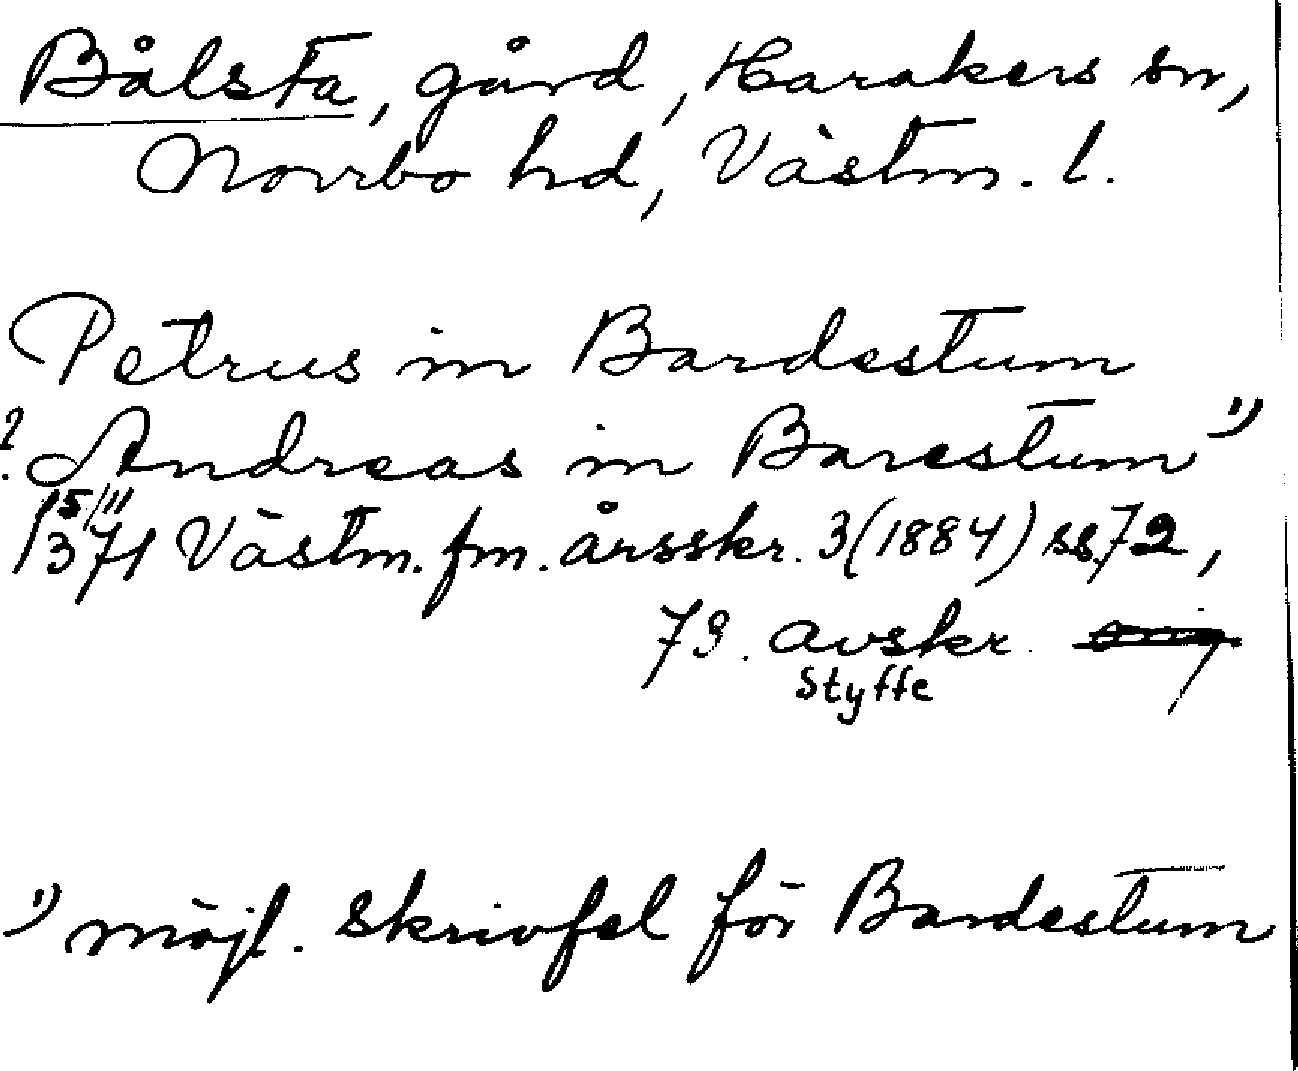 Bålsta, gård, Harakers sn,
Norrbo hd, Västm. l.
Petrus in Bardestum
? Andreas in Barestum 1)
15/11
1371 Västm. fm. årsskr. 3 (1884) ss. 72,
79. avskr.
Styffe
1) möjl. skrivfel för Bardestum